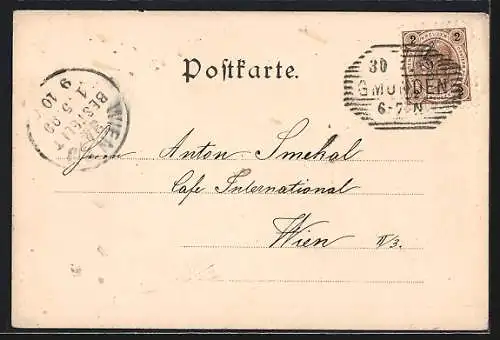 2 2
Postkarte.
30
GMUNDEN
6-7 N
WIEN
BESTELLT
Herrn Anton Smekal
Cafe International
Wien II/3.